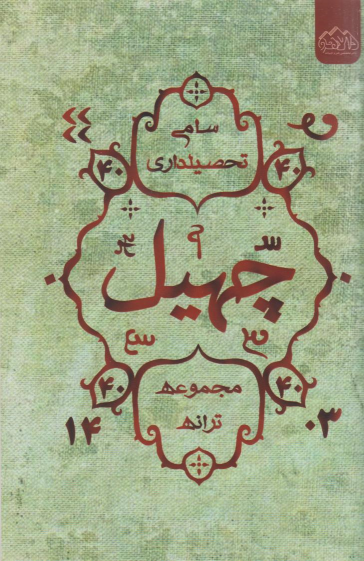 سامی
تحصیلداری
۴۰ ۴۰
چهیل
۴۰ ۴۰
مجموعه
ترانه
۱۴ ۰۳